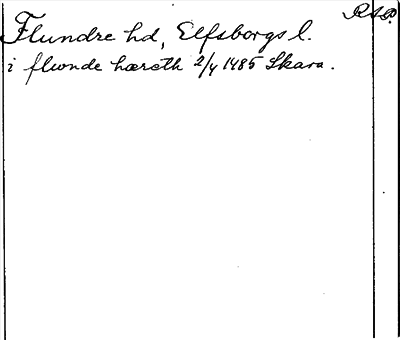 RAP.
Flundre hd, Elfsborgs l.
i flwnde hæreth 2/4 1485 Skara.